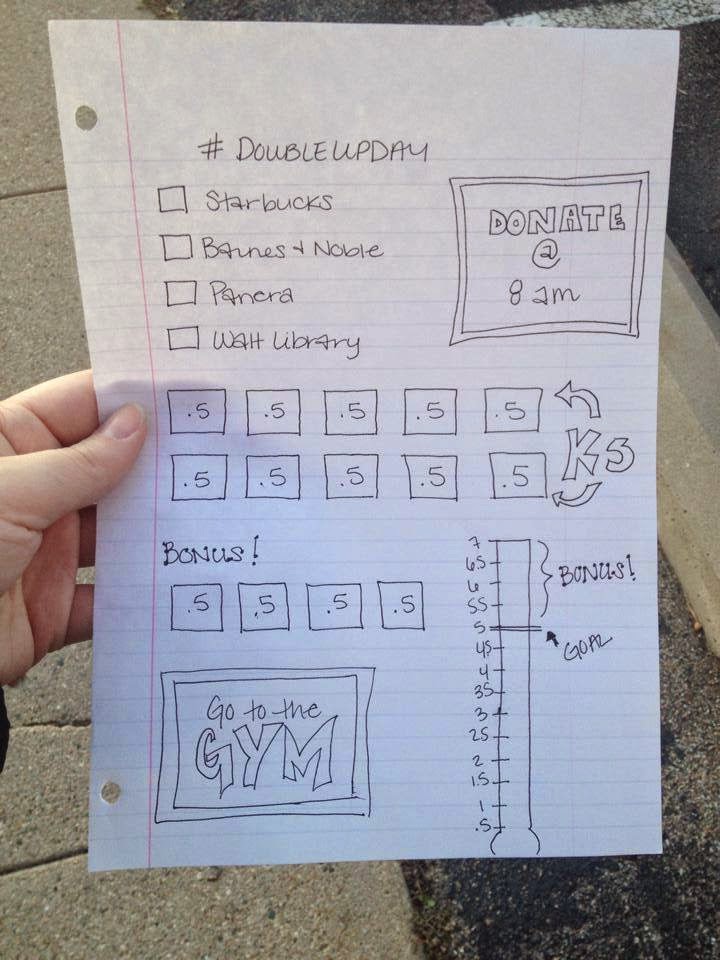 # DOUBLEUPDAY
Starbucks
Barnes + Noble
Panera
Walt Library
DONATE
@
8 am
.5 .5 .5 .5 .5
.5 .5 .5 .5 .5
Ks
BONUS!
.5 .5 .5 .5
Go to the
GYM
7
65
6
55
5
45
4
35
3
25
2
1.5
1
.5
BONUS!
GOAL